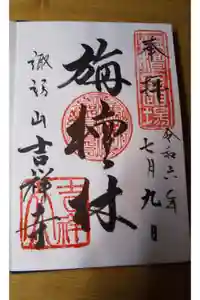 奉拝
令和六年
七月九日
旃檀林
諏訪山吉祥寺